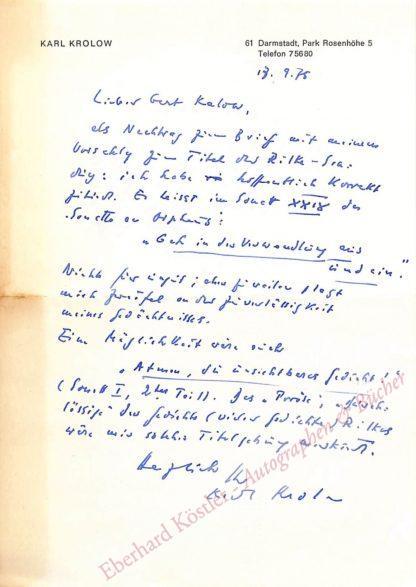 KARL KROLOW
61 Darmstadt, Park Rosenhöhe 5
Telefon 75680
9.75
Lieber Gert Kalow,
als Nachtrag zum Brief mit meinem
Vorschlag zum Titel der Rilke-Sen-
dung: ich habe hoffentlich korrekt
zitiert. Es heisst im Sonett XXIX der
Sonette an Orpheus:
„Geh in der Verwandlung aus
und ein."
Nichts für ungut; aber zuweilen plagt
mich Zweifel an der Zuverlässigkeit
meines Gedächtnisses.
Eine Möglichkeit wäre auch
„Atmen, du unsichtbares Gedicht!"
(Sonett I, 2ter Teil). Das „Poröse",
lässige des Gedichts (vieler Gedichte) Rilkes
wäre mit solcher Titelgebung
Herzlich Ihr
Karl Krolow
Eberhard Köstler Autographen & Bücher